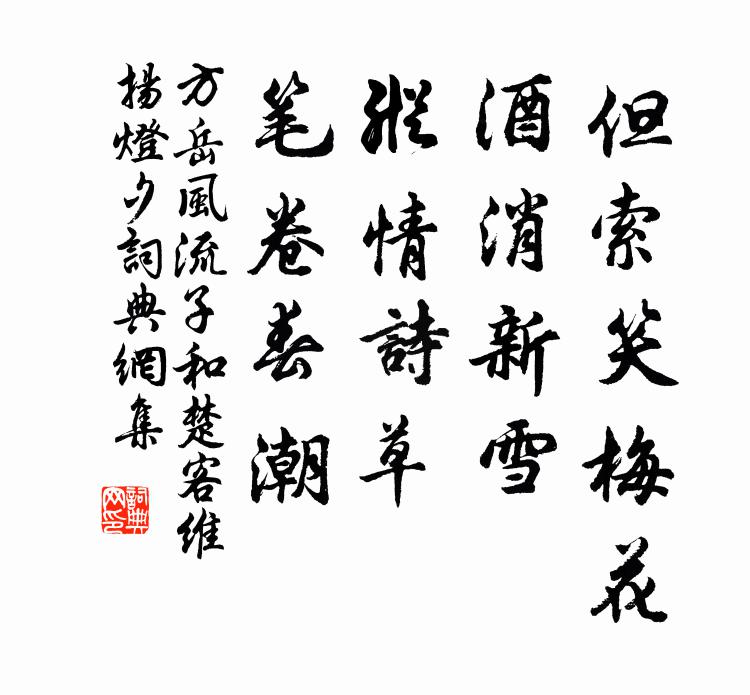 但索笑梅花
酒消新雪
縱情詩草
笔卷春潮
方岳風流子和楚客維
揚燈夕詞典網集
詞典
网印